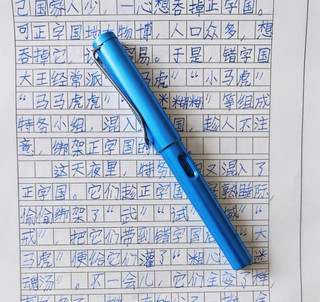 己国家人少,一心想吞掉正字国。
可正字国地大物博,人口众多,想
吞掉它,容易。于是,错字国
大王经常派马虎”“小马虎”
“马马虎虎”米糊糊”等组成
特务小组,混入国,趁人不注
意,绑架正字国的
这天夜里,特务又混入了
正字国。它们趁正字国熟睡际,
偷偷绑架了“武”“试”
戒”,把它们带到错字国
马虎”便给它们灌了“粗心迷
魂汤”。不一会儿,它们全变了模